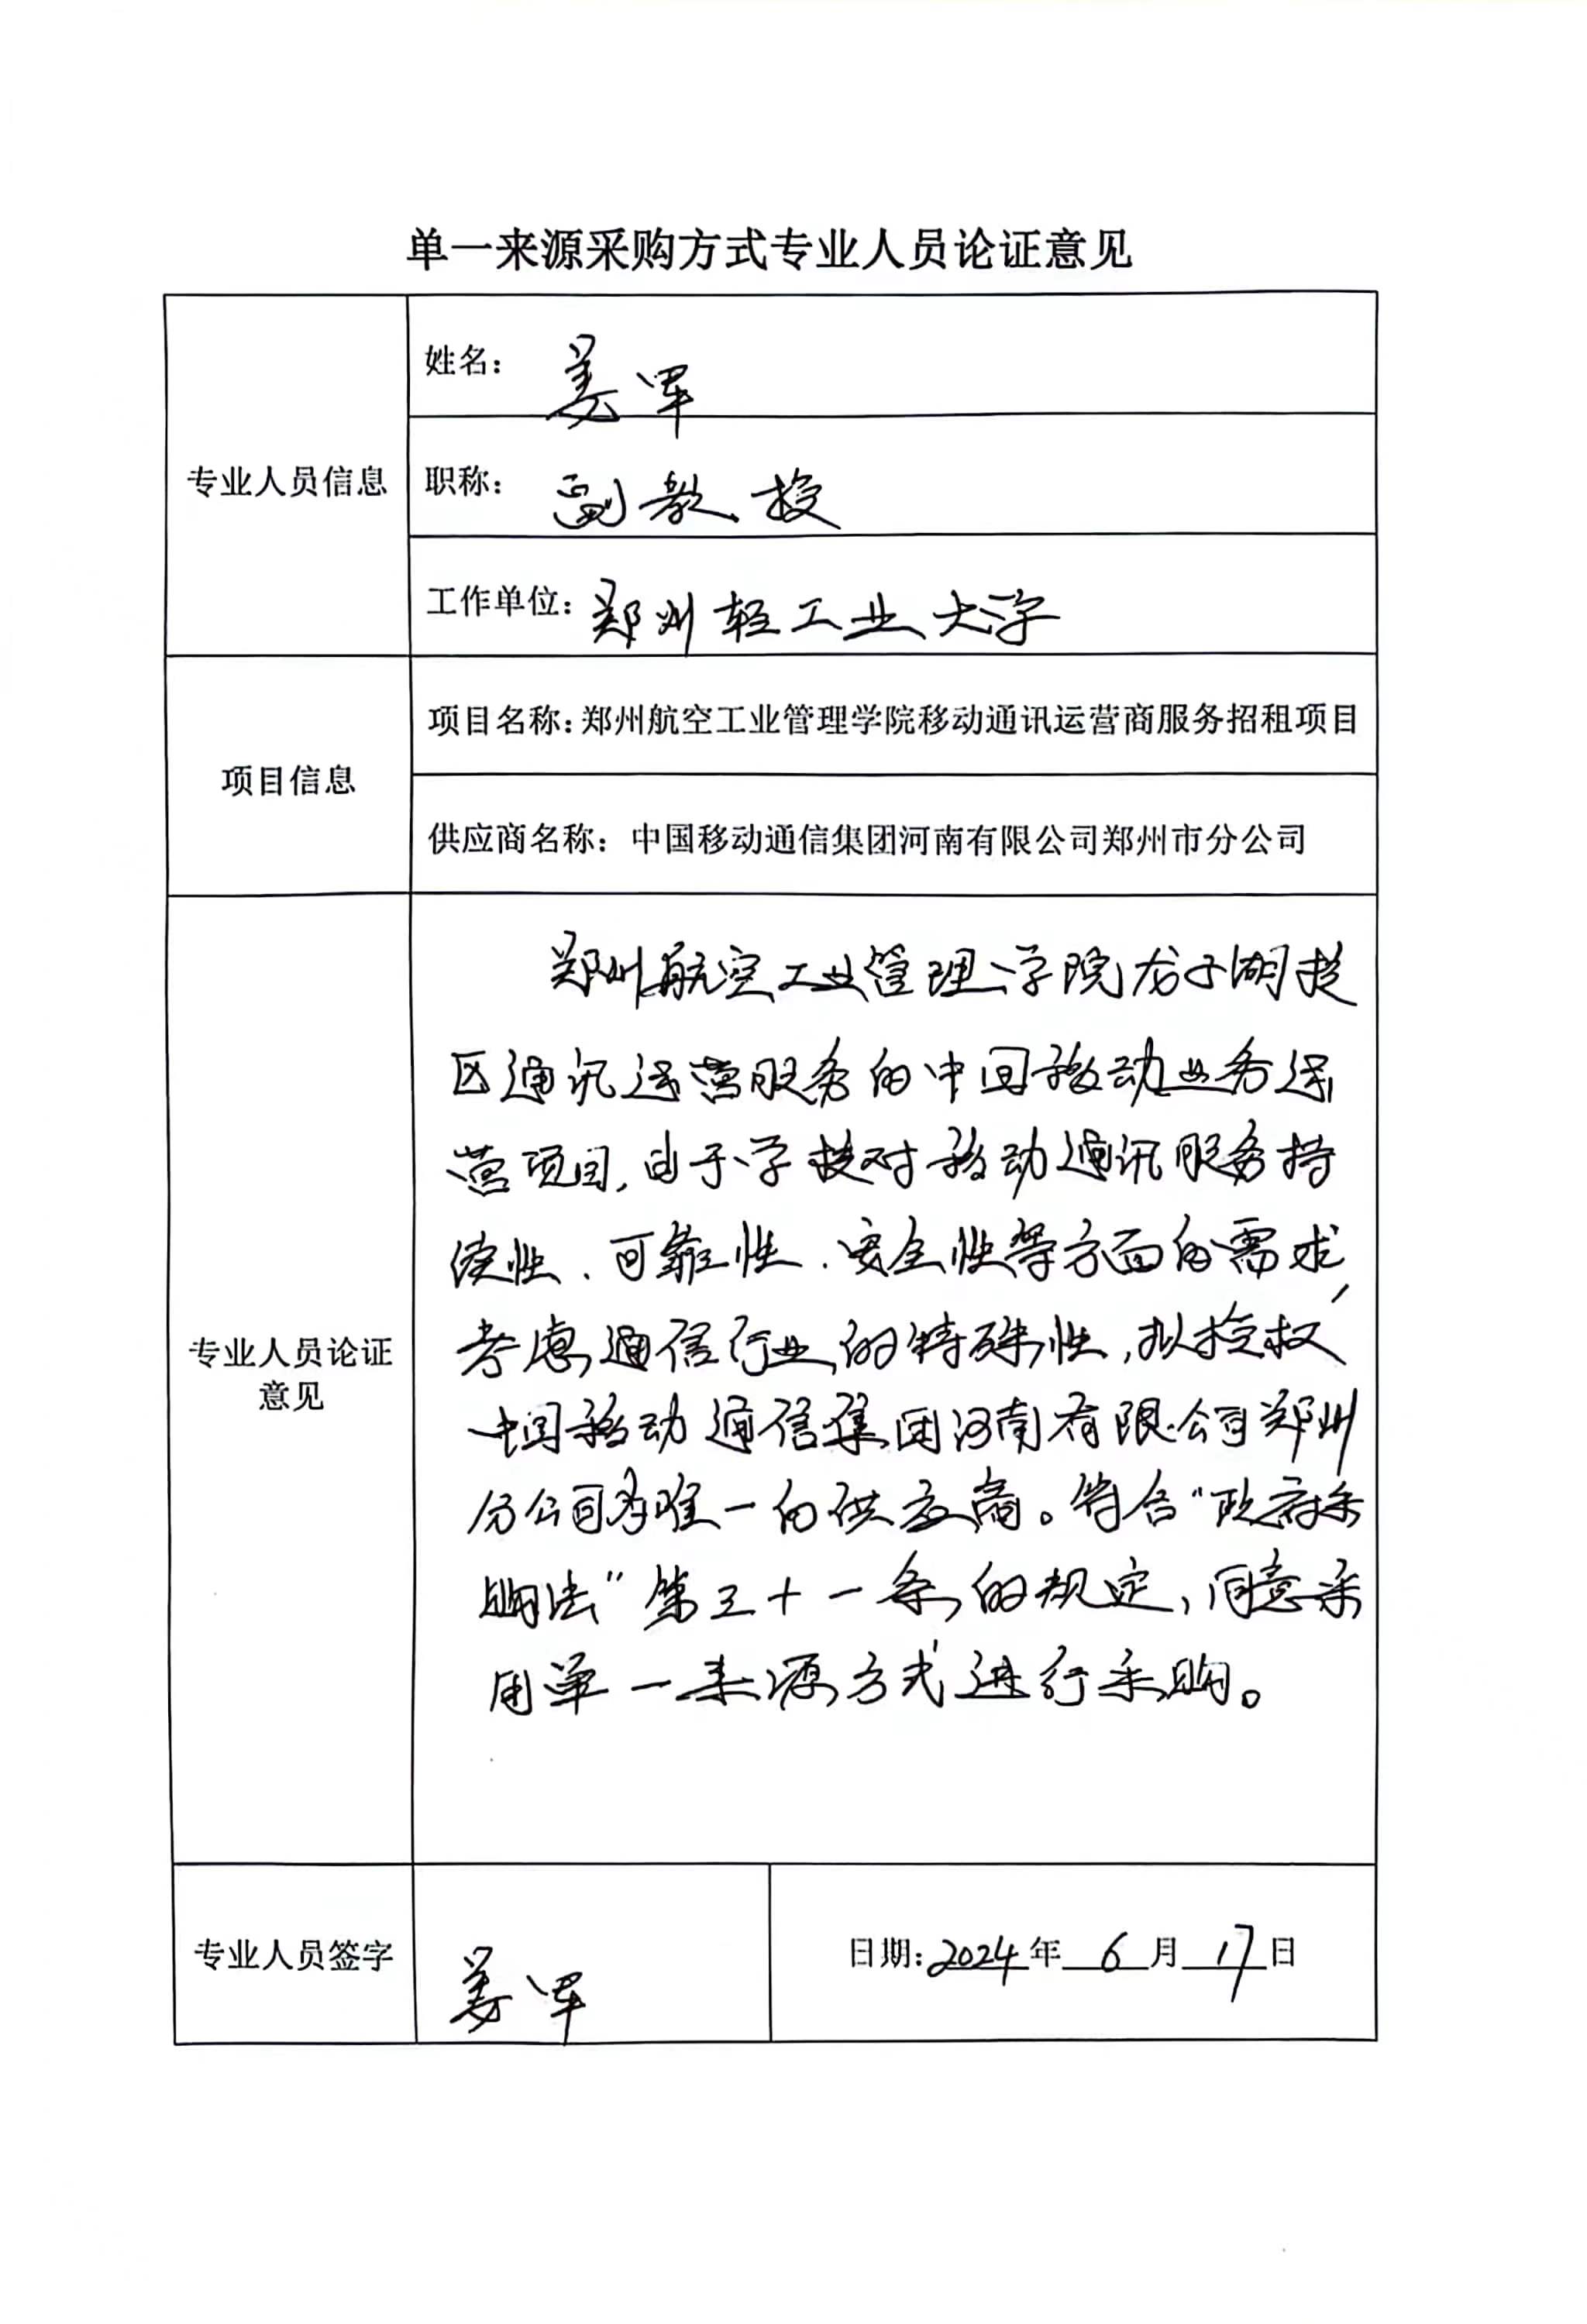 单一来源采购方式专业人员论证意见
专业人员信息
姓名：姜军
职称：副教授
工作单位：郑州轻工业大学
项目信息
项目名称：郑州航空工业管理学院移动通讯运营商服务招租项目
供应商名称：中国移动通信集团河南有限公司郑州市分公司
专业人员论证
意见
郑州航空工业管理学院龙子湖校
区通讯运营服务的中国移动业务运
营项目，由于学校对移动通讯服务持
续性、可靠性、安全性等方面的需求，
考虑通信行业的特殊性，拟授权
中国移动通信集团河南有限公司郑州
分公司为唯一的供应商。符合“政府采
购法”第三十一条的规定，同意采
用单一来源方式进行采购。
专业人员签字
姜军
日期：2024年6月17日